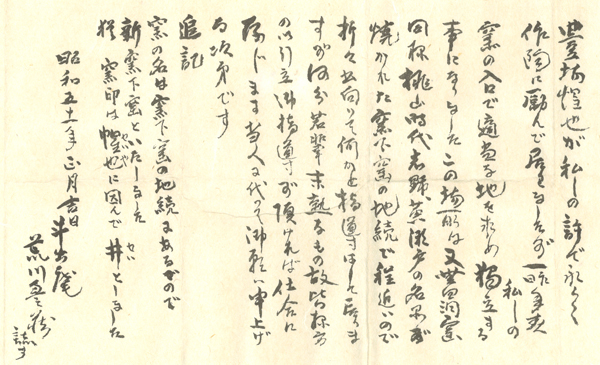 豊場惺也が私しの許で永らく
作陶に励んで居りましたが 一昨年夏 私しの
窯の入口で適当な地を求め独立する
事になりました この場所は又無田洞窯
同様桃山時代志野、黄瀬戸の名品が
焼かれた窯下窯の地続で程近いので
折々出向いて何かと指導はして居りま
すが 何分若輩未熟なもの故皆様方
のお引立御指導が頂ければ仕合に
存じます 当人に代って御願い申上げ
る次第です
追記
窯の名は窯下窯の地続きにあるもので
新窯下窯といたしました
猶窯印は惺也に因んで 井としました
せい
せいや
昭和五十一年正月吉日
斗出庵
荒川豊蔵
誌す